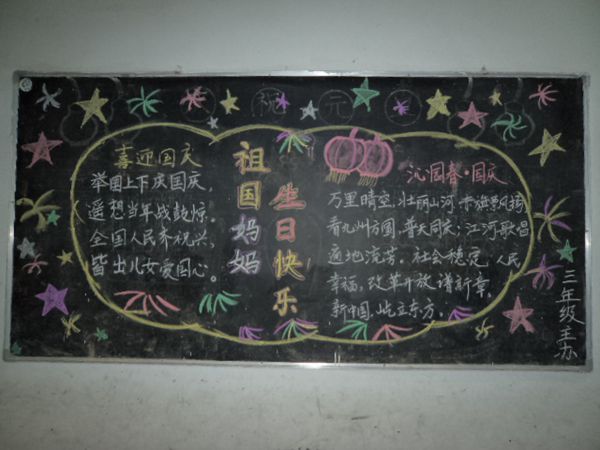 喜迎国庆
举国上下庆国庆,
遥想当年战鼓惊。
全国人民齐祝兴,
皆出儿女爱国心。
祖国妈妈
生日快乐
沁园春·国庆
万里晴空,壮丽山河,
看九州方圆,普天同庆;江河歌唱
遍地流芳。社会稳定,人民
幸福,改革开放谱新章,
新中国,屹立东方。
三年级主办